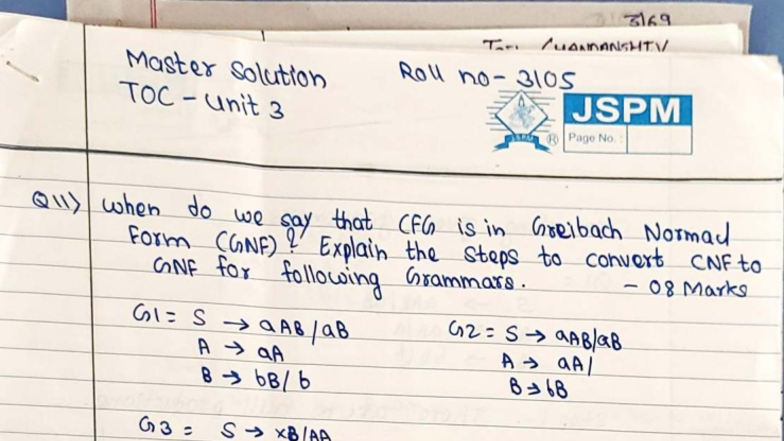 3169
Master Solution Roll no - 3105
TOC - Unit 3
JSPM
JSPM ®
Page No. :
Q11) When do we say that CFG is in Greibach Normad
Form (GNF) ? Explain the steps to convert CNF to
GNF for following Grammars. - 08 Marks
G1 = S → aAB/aB G2 = S → aAB/aB
A → aA A → aA/
B → bB/b B → bB
G3 = S → XB/AA